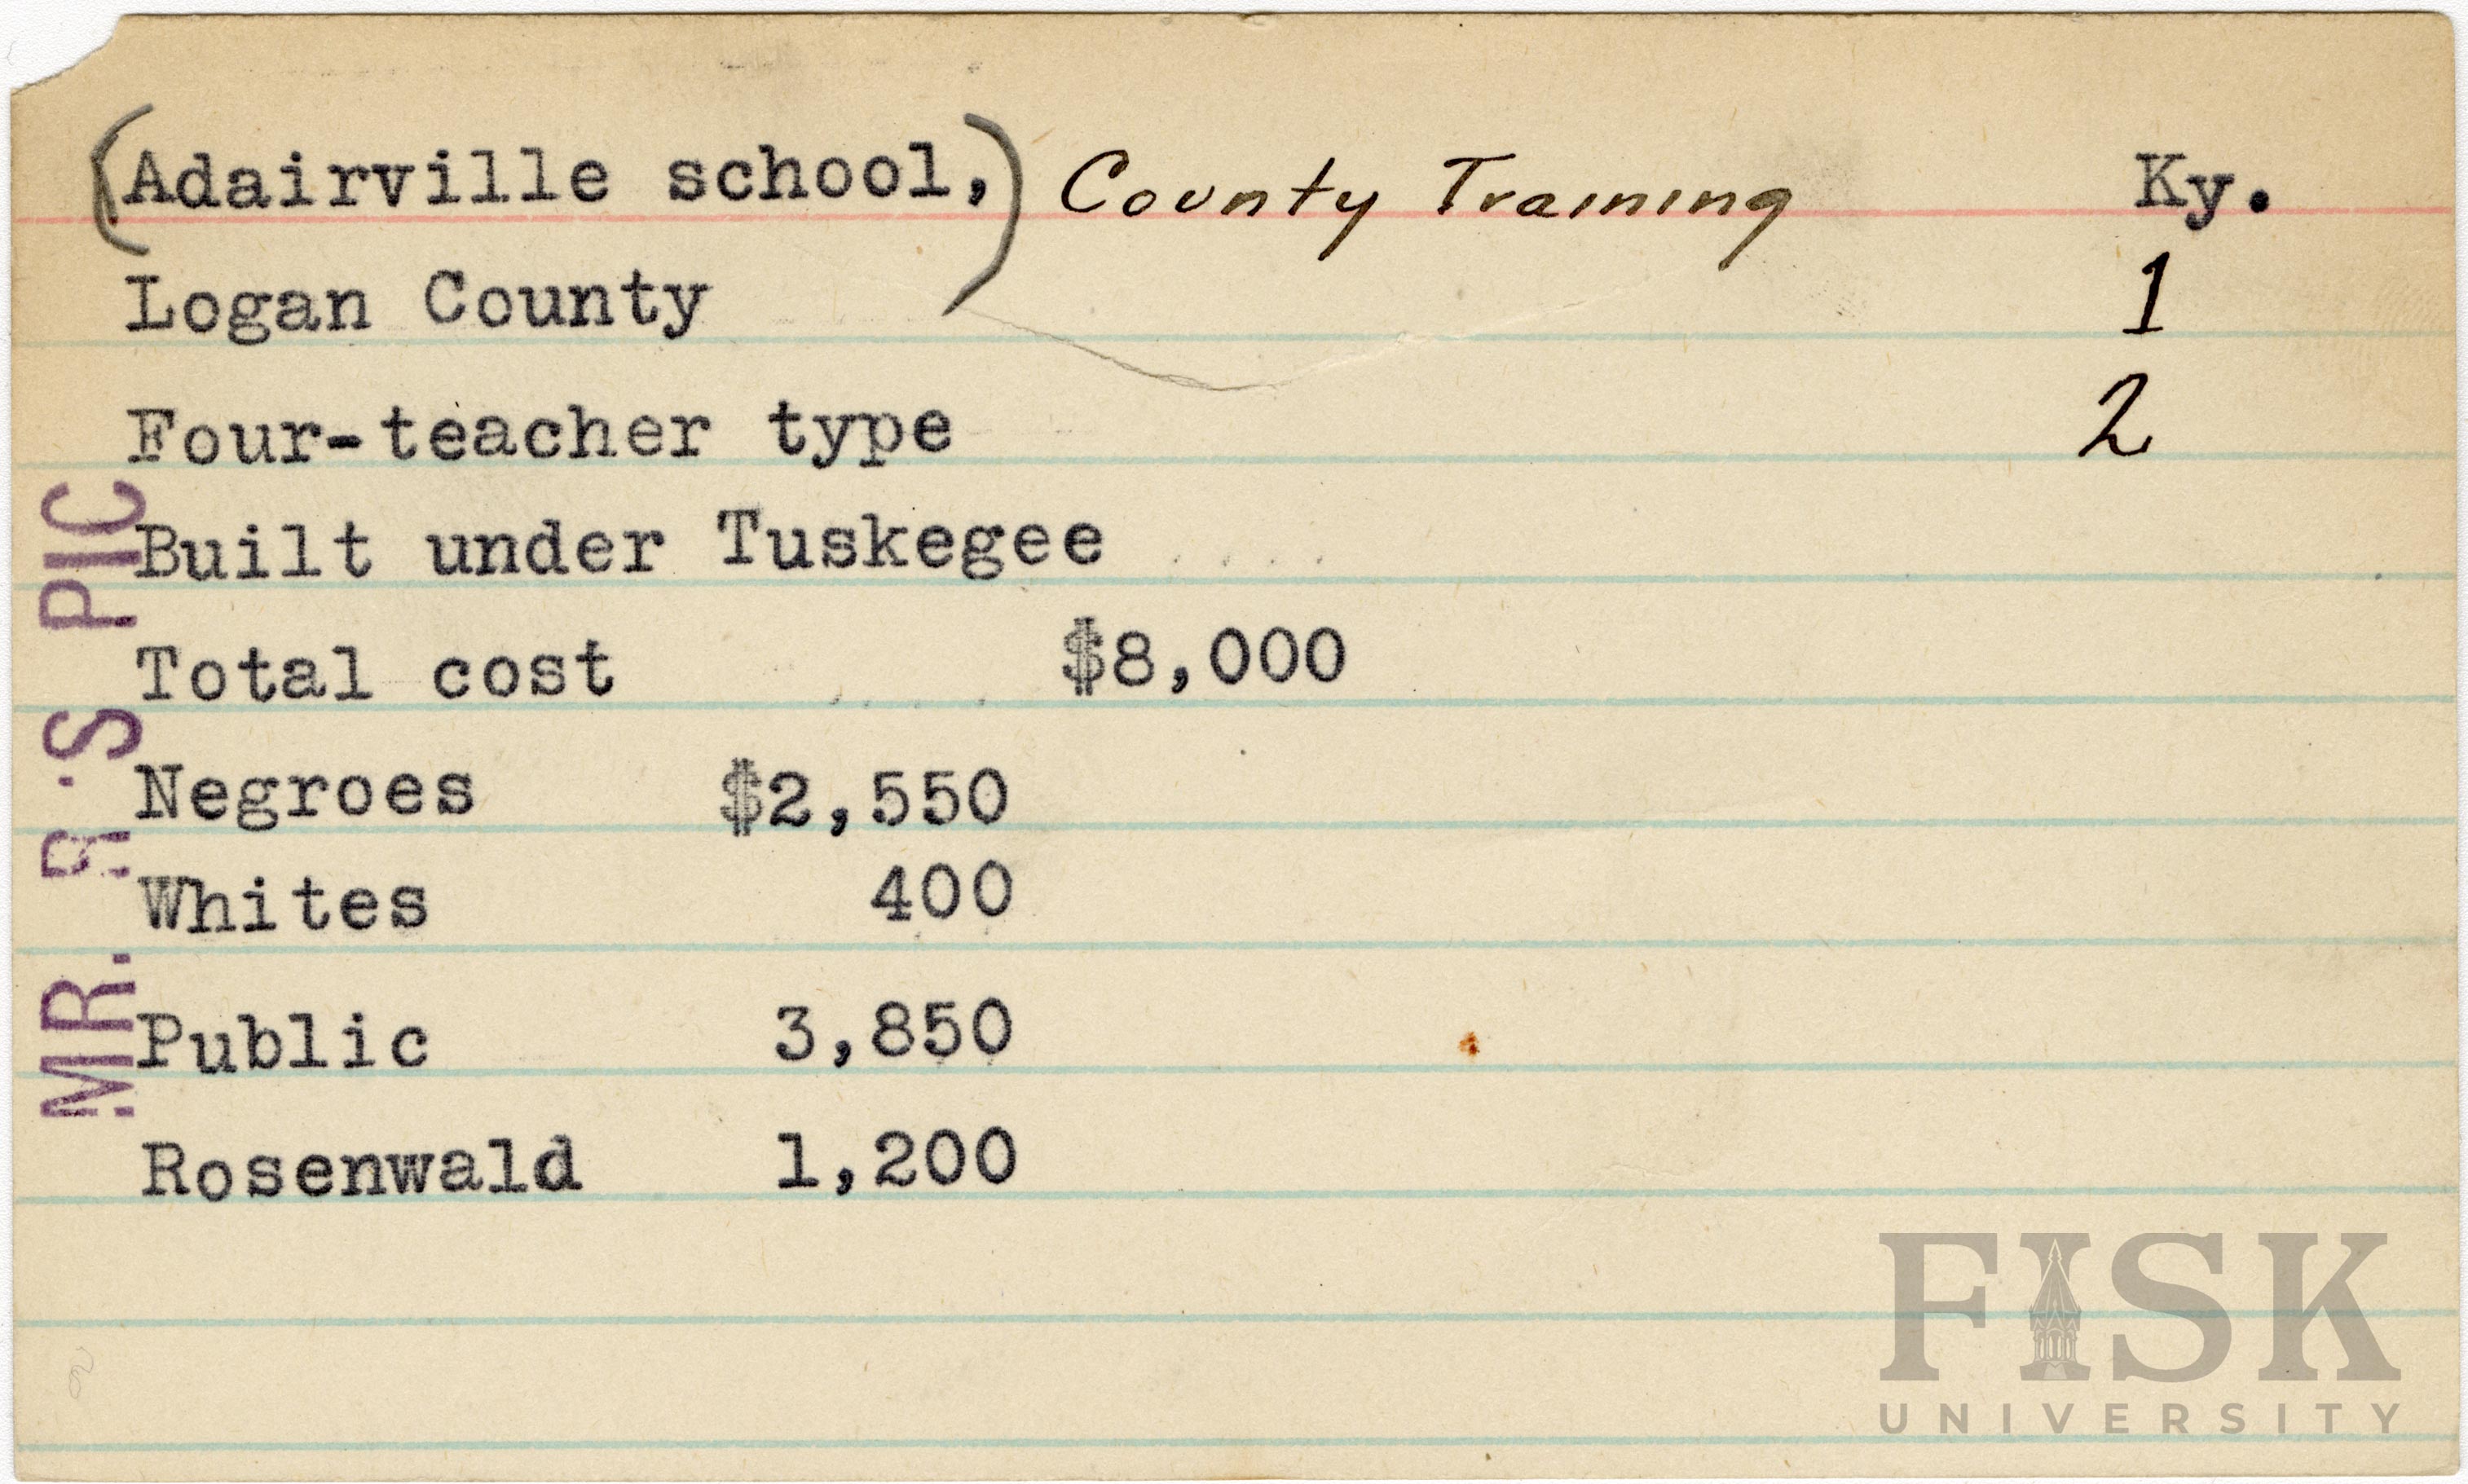 (Adairville school,) County Training Ky.
Logan County 1
Four-teacher type 2
Built under Tuskegee
Total cost $8,000
Negroes $2,550
Whites 400
Public 3,850
Rosenwald 1,200
MR. R·S PIC
FISK
UNIVERSITY